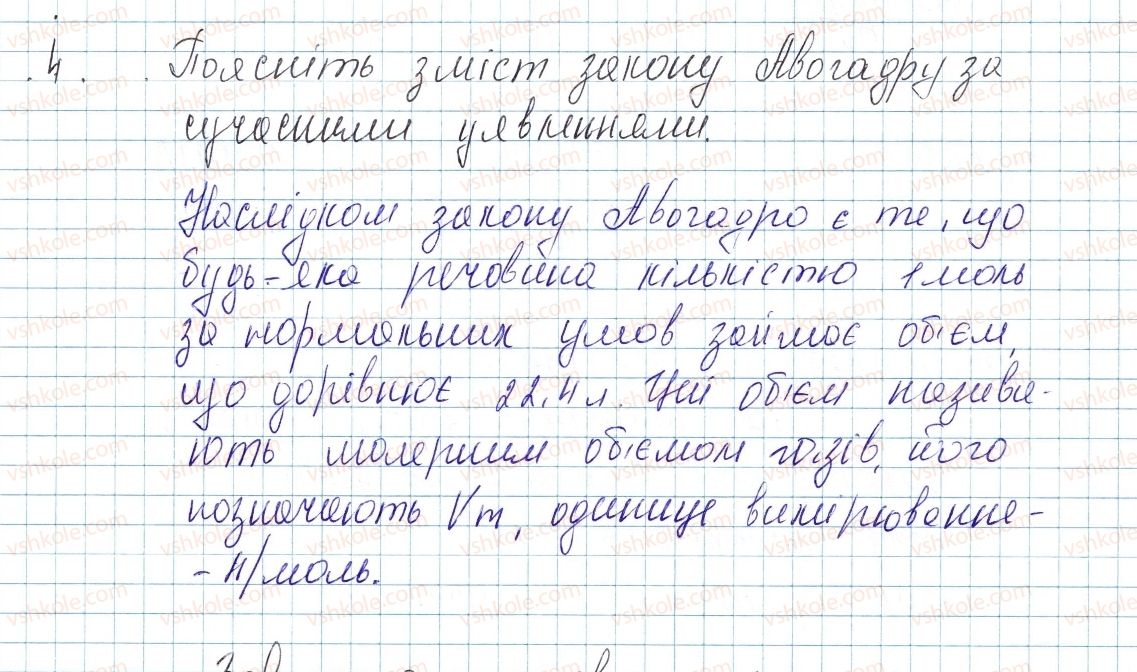 4. Поясніть зміст закону Авогадру за
сучасними уявленнями.
Наслідком закону Авогадро є те, що
будь-яка речовина кількістю 1 моль
за нормальних умов займає об'єм,
що дорівнює 22,4 л. Цей об'єм назива-
ють молярним об'ємом газів, його
позначають Vm, одиниця вимірювання -
- л/моль.